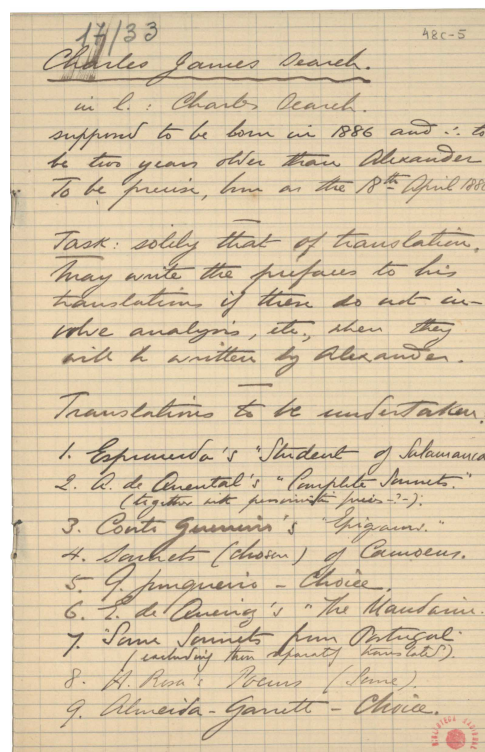 17/33
48C-5
Charles James Search.
in l. : Charles Search.
supposed to be born in 1886 and ∴ to
be two years older than Alexander
To be precise, born on the 18th April 1886
Task: solely that of translation.
May write the prefaces to his
translations if these do not in-
volve analysis, etc., when they
will be written by Alexander.
Translations to be undertaken.
1. Espronceda's "Student of Salamanca
2. A. de Quental's "Complete Sonnets."
(together with pessimistic -?-).
3. Couto Guerreiro's "Epigrams."
4. Sonnets (chosen) of Camoens.
5. G. Junqueiro - Choice.
6. E. de Queiroz's "The Mandarin.
7. "Some Sonnets from Portugal
(excluding those separately translated).
8. H. Rosa's Poems (Some)
9. Almeida-Garrett - Choice.
BIBLIOTECA NACIONAL